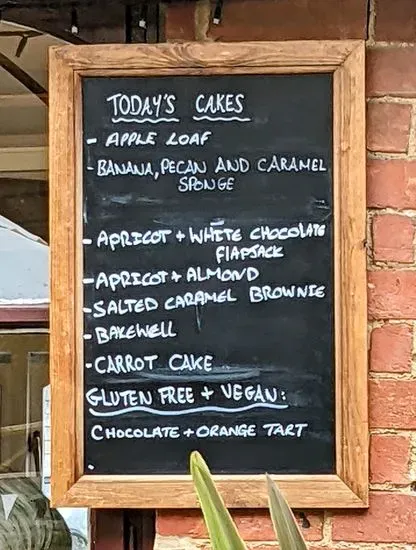 TODAY'S CAKES
- APPLE LOAF
- BANANA, PECAN AND CARAMEL
SPONGE
- APRICOT + WHITE CHOCOLATE
FLAPJACK
- APRICOT + ALMOND
- SALTED CARAMEL BROWNIE
- BAKEWELL
- CARROT CAKE
GLUTEN FREE + VEGAN:
CHOCOLATE + ORANGE TART